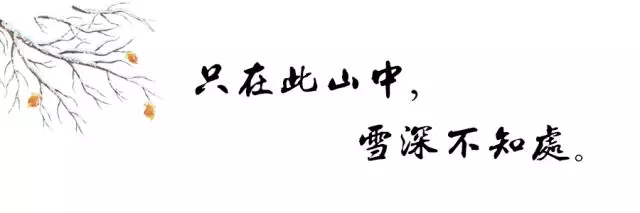 只在此山中，
雪深不知處。